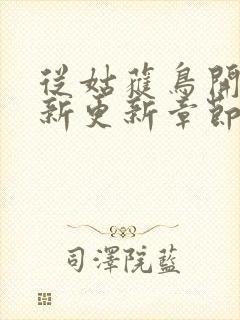 從姑蘿鳥開
新更新章節
司澤院藍